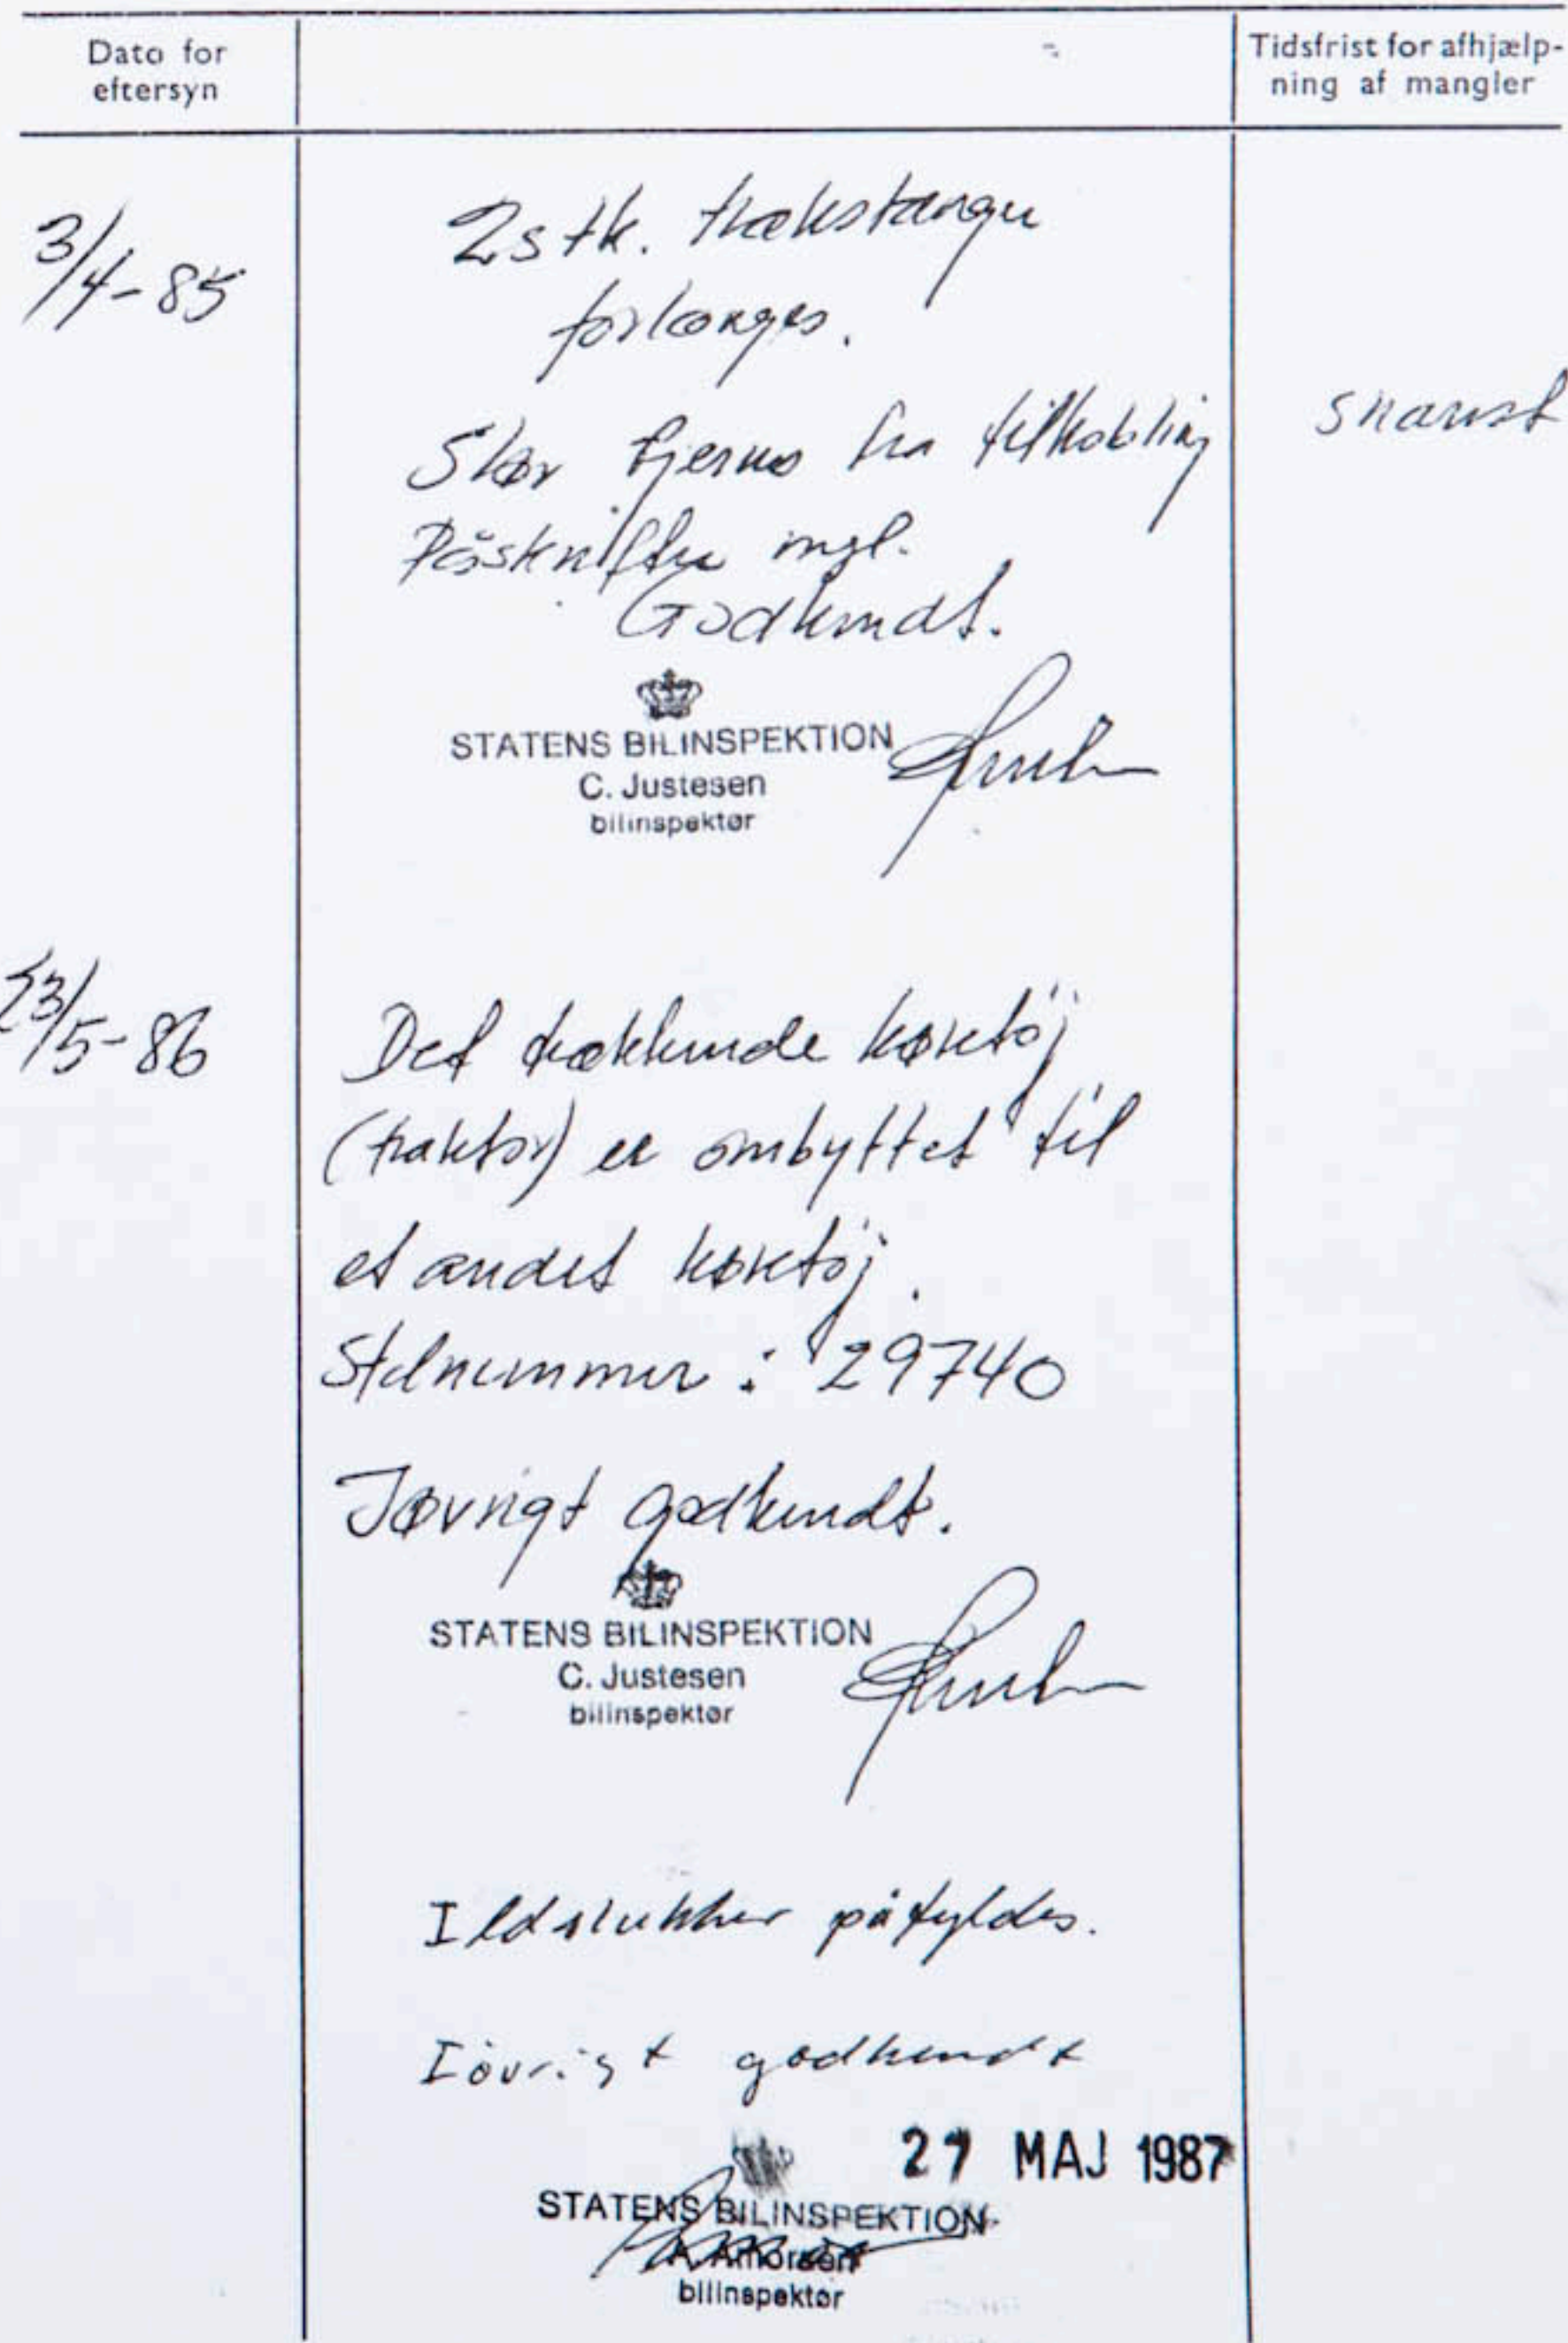 Dato for
eftersyn
Tidsfrist for afhjælp-
ning af mangler
3/4-85
2 stk. trækstænger
forlænges.
Skær fjernes fra tilkobling
snarest
Påskrifter mgl.
Godkendt.
STATENS BILINSPEKTION
C. Justesen
bilinspektør
23/5-86
Det trækkende køretöj
(traktor) er ombyttet til
et andet køretöj.
Stelnummer : 29740
Iøvrigt godkendt.
STATENS BILINSPEKTION
C. Justesen
bilinspektør
Ildslukker påfyldes.
Iövrigt godkendt
27 MAJ 1987
STATENS BILINSPEKTION
bilinspektør